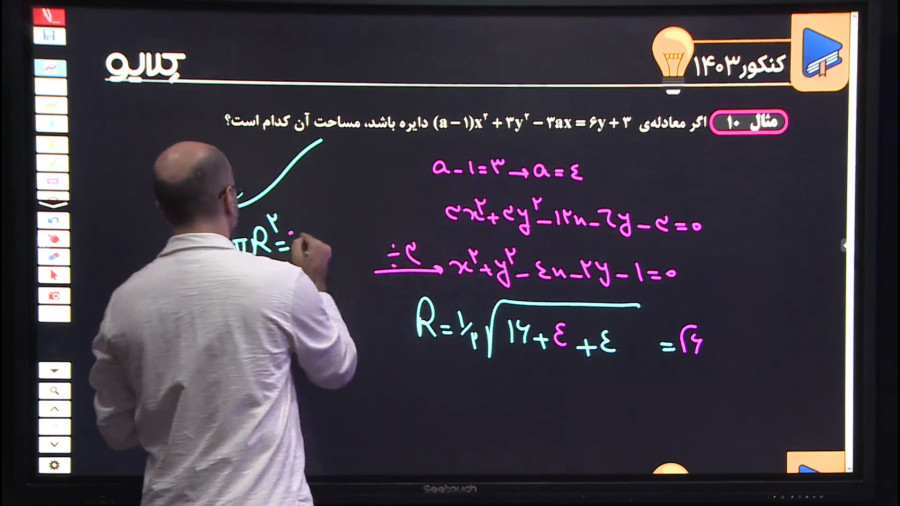 کنکور ۱۴۰۳
کلاینو
مثال ۱۰ اگر معادله‌ی (a−۱)x² + ۳y² − ۳ax = ۶y + ۳ دایره باشد، مساحت آن کدام است؟
a − ۱ = ۳ → a = ٤
۳x² + ۳y² − ۱۲x − ٦y − ۳ = ۰
÷۳ → x² + y² − ٤x − ۲y − ۱ = ۰
R = ۱/۲ √(۱۶ + ٤ + ٤) = √۶
πR² =
Seetouch